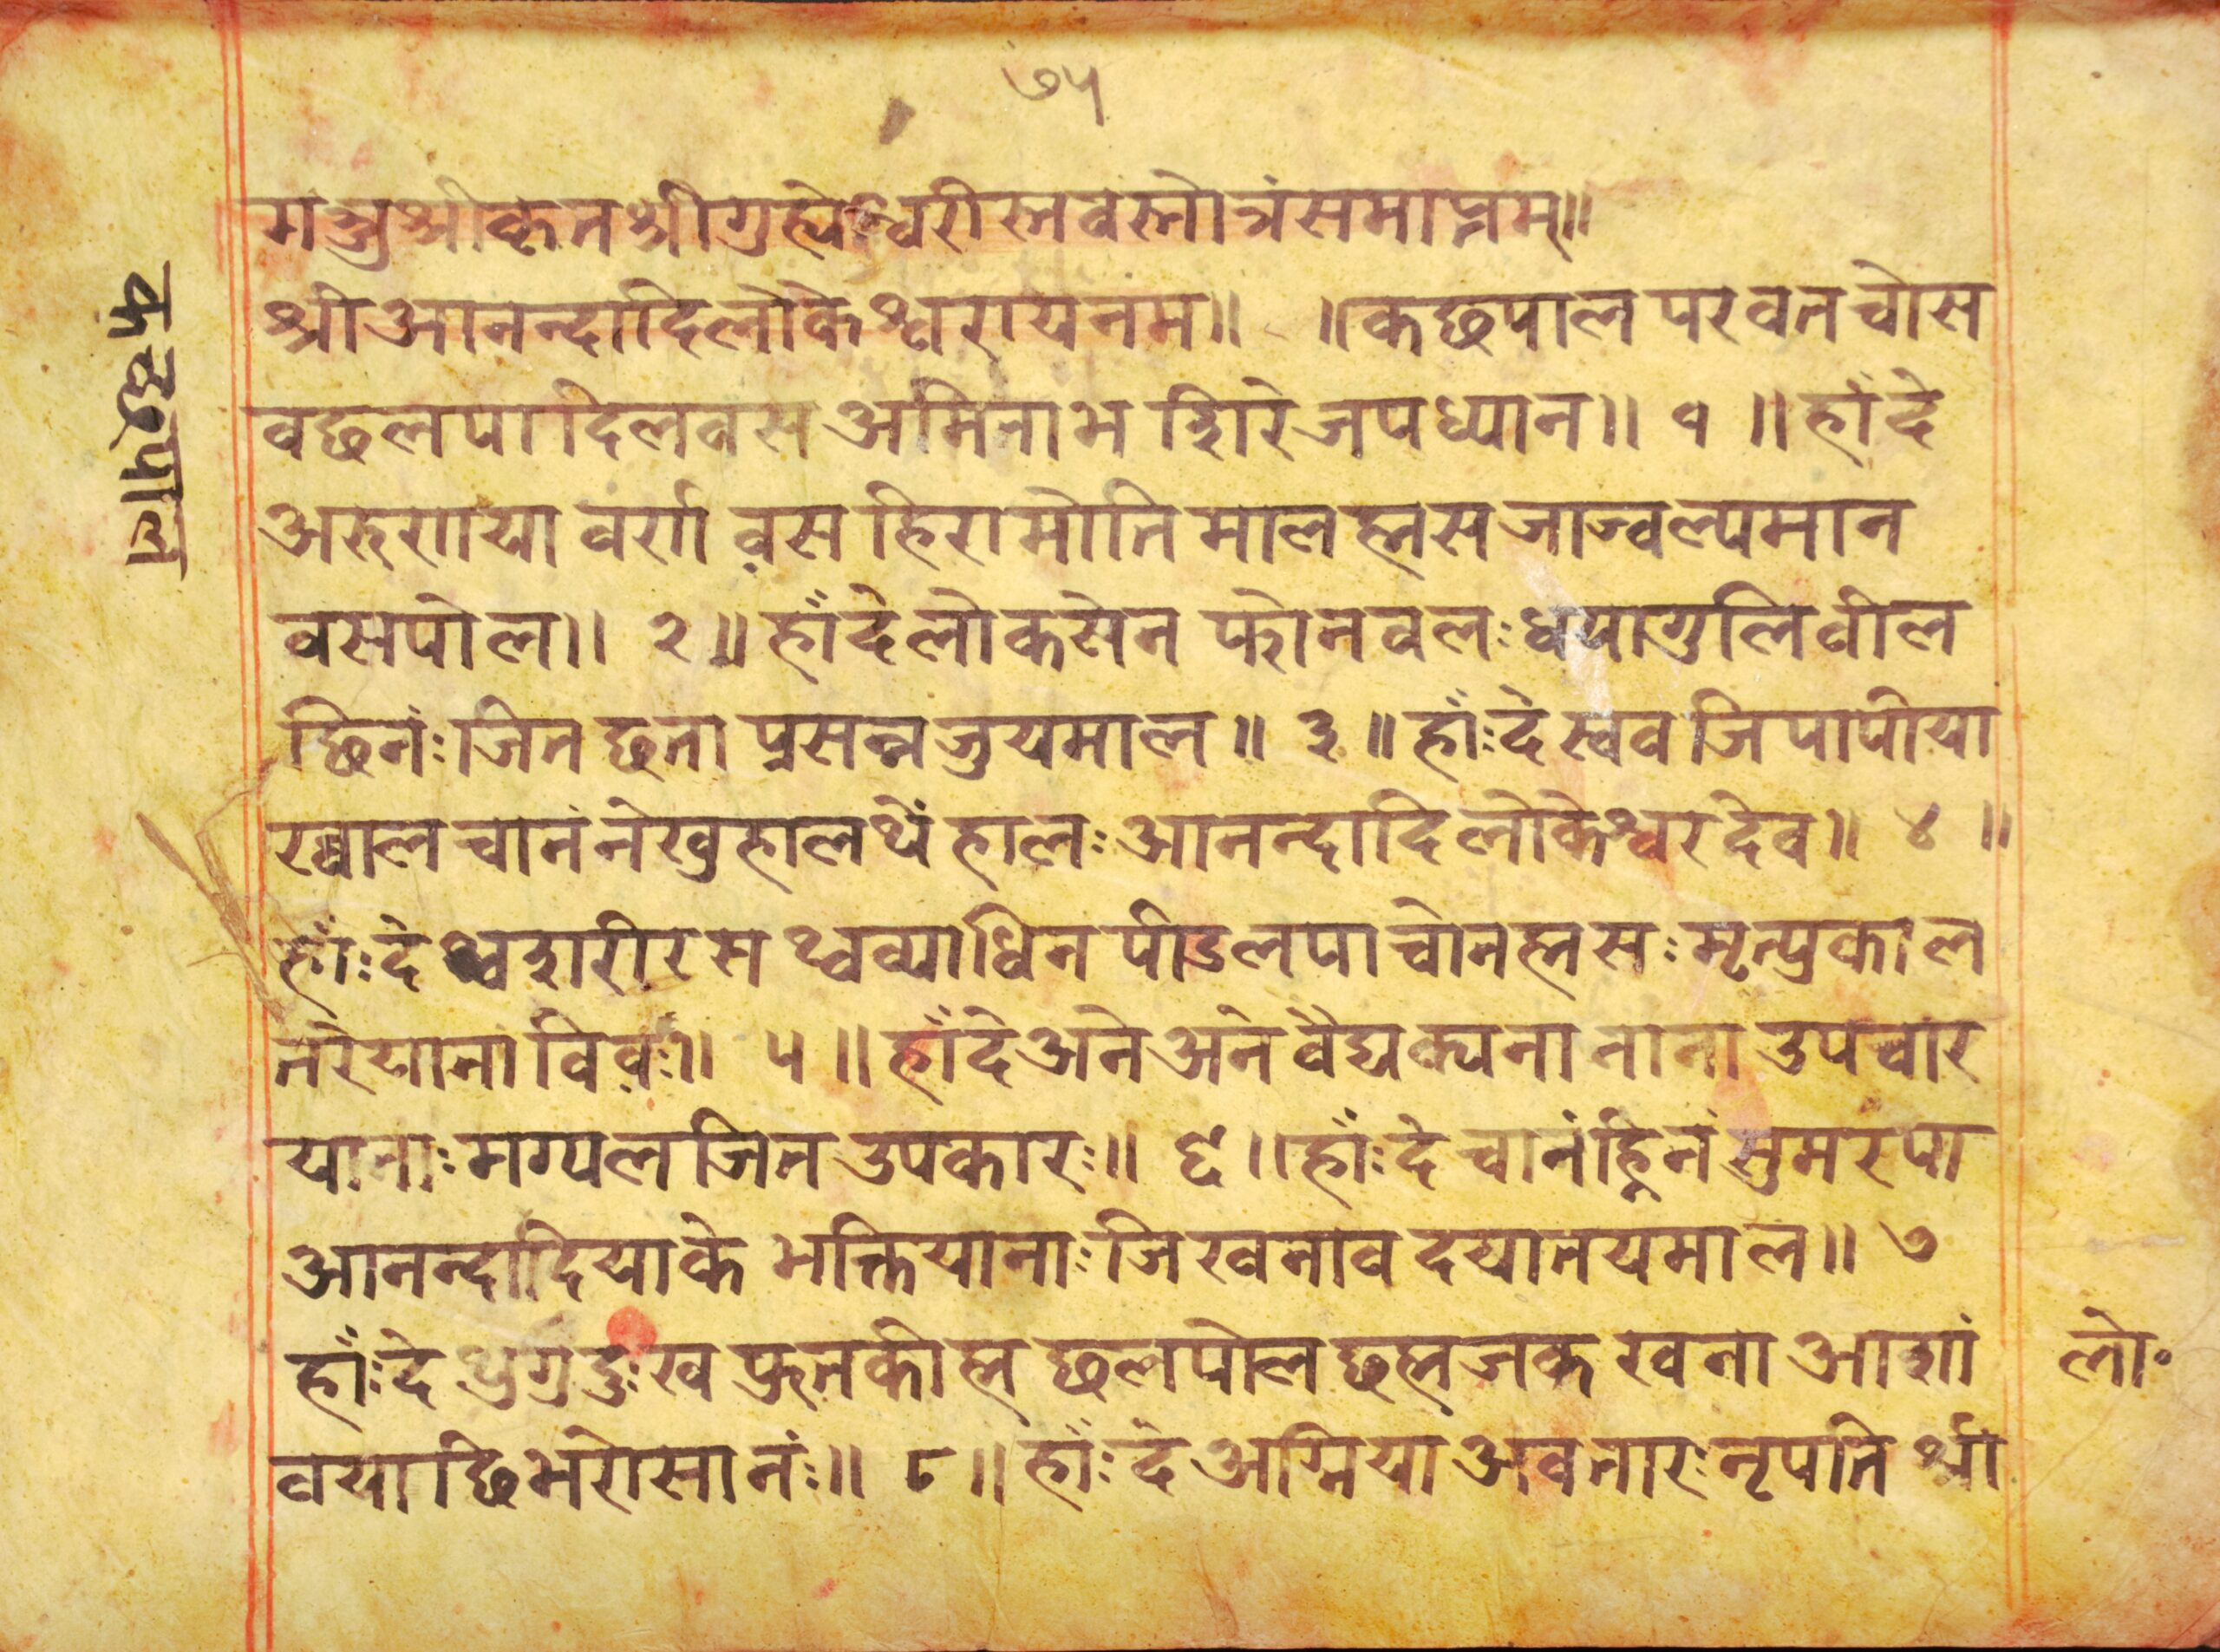 ७५
मञ्जुश्रीकृतश्रीगुह्येश्वरीस्तवस्तोत्रंसमाप्तम्॥
श्रीआनन्दादिलोकेश्वरायनम॥ ॥कछपाल परवत चोस
वछलपादिलवस अमिताभ शिरे जपध्यान॥ १ ॥हाँदे
अरुणया वर्ण वस हिरामोति मालह्नस जाज्वल्यमान
वसपोल॥ २ ॥हाँदेलोकसेन फोनवलः धयागुलिवील
छिनंः जितछता प्रसन्नजुयमाल॥ ३ ॥हाँःदे स्वव जिपापीया
ख्वालचानंनेखुहालथें हालः आनन्दादिलोकेश्वरदेव॥ ४ ॥
हाँःदे थ्वशरीरस थ्वव्याधिन पीडलपाचोनह्नसः मृत्युकाल
तरेयाना विवः॥ ५ ॥हाँदेअनेअने वैद्यक्यना नाना उपचार
यानाः मग्यलजित उपकारः॥ ६ ॥हाँःदे चानंह्निनं सुमरपा
आनन्दादियाके भक्तियानाः जिखनाव दयातयमाल॥ ७
हाँःदे थुगुदुःख फुतकीह्न छलपोल छह्नजक खना आशां
लो॰
वयाछिभरोसानंः॥ ८॥ हाँःदे अग्नियाअवतारः नृपति श्री
कछपाल